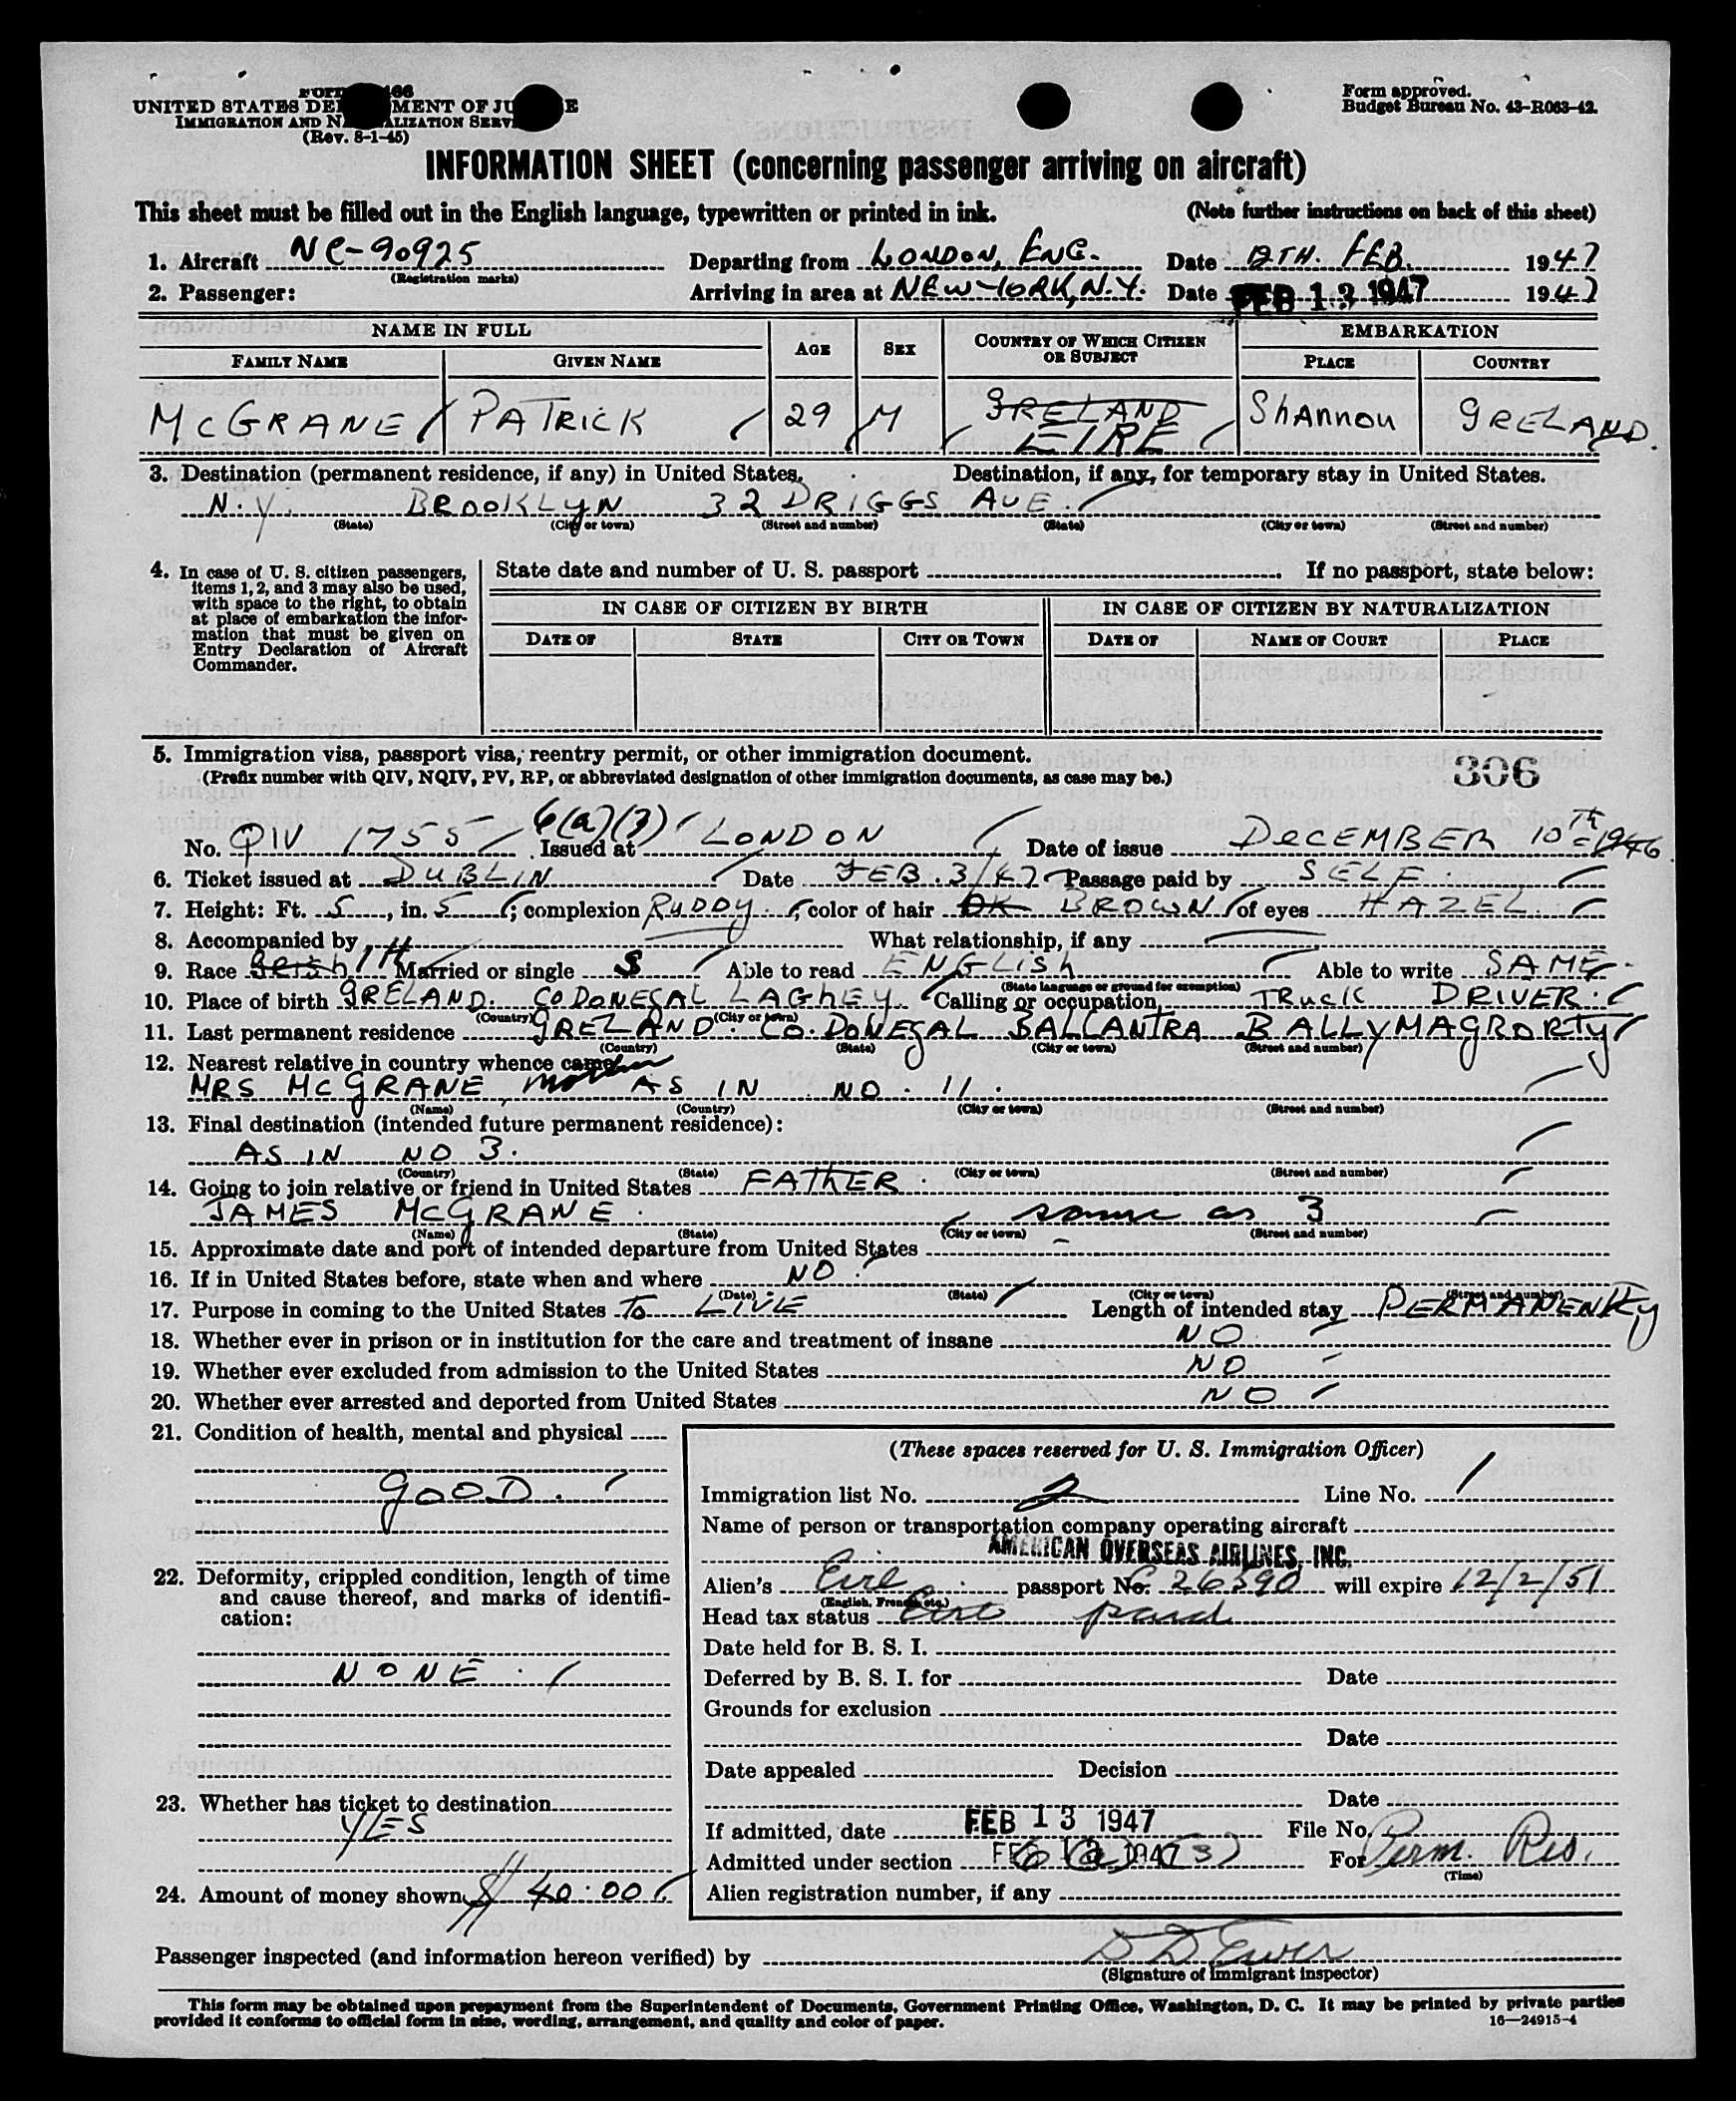 UNITED STATES DE MENT OF JU E
IMMIGRATION AND N ALIZATION SERV
(Rev. 8-1-45)
Form approved.
Budget Bureau No. 43-R063-42.
INFORMATION SHEET (concerning passenger arriving on aircraft)
This sheet must be filled out in the English language, typewritten or printed in ink. (Note further instructions on back of this sheet)
1. Aircraft NC-90925 Departing from LONDON, ENG. Date 12TH. FEB. 1947
(Registration marks)
2. Passenger: Arriving in area at NEW YORK, N.Y. Date FEB 13 1947 1947
NAME IN FULL AGE SEX COUNTRY OF WHICH CITIZEN OR SUBJECT EMBARKATION
FAMILY NAME GIVEN NAME PLACE COUNTRY
MCGRANE PATRICK 29 M IRELAND EIRE Shannon IRELAND.
3. Destination (permanent residence, if any) in United States. Destination, if any, for temporary stay in United States.
N.Y. BROOKLYN 32 DRIGGS AVE.
(State) (City or town) (Street and number) (State) (City or town) (Street and number)
4. In case of U. S. citizen passengers, items 1, 2, and 3 may also be used, with space to the right, to obtain at place of embarkation the information that must be given on Entry Declaration of Aircraft Commander.
State date and number of U. S. passport If no passport, state below:
IN CASE OF CITIZEN BY BIRTH IN CASE OF CITIZEN BY NATURALIZATION
DATE OF STATE CITY OR TOWN DATE OF NAME OF COURT PLACE
5. Immigration visa, passport visa, reentry permit, or other immigration document.
(Prefix number with QIV, NQIV, PV, RP, or abbreviated designation of other immigration documents, as case may be.)
306
No. QIV 1755 6(a)(3) Issued at LONDON Date of issue DECEMBER 10TH 1946
6. Ticket issued at DUBLIN Date FEB. 3/47 Passage paid by SELF.
7. Height: Ft. 5, in. 5; complexion RUDDY, color of hair DK BROWN of eyes HAZEL
8. Accompanied by What relationship, if any
9. Race Irish Married or single S Able to read ENGLISH Able to write SAME.
(State language or ground for exemption)
10. Place of birth IRELAND. CO DONEGAL LAGHEY. Calling or occupation TRUCK DRIVER.
(Country) (City or town)
11. Last permanent residence IRELAND. CO. DONEGAL BALLANTRA BALLYMAGRORTY
(Country) (State) (City or town) (Street and number)
12. Nearest relative in country whence came
MRS MCGRANE, mother AS IN NO. 11.
(Name) (Country) (City or town) (Street and number)
13. Final destination (intended future permanent residence):
AS IN NO 3.
(Country) (State) (City or town) (Street and number)
14. Going to join relative or friend in United States FATHER.
JAMES MCGRANE. same as 3
(Name) (State) (City or town) (Street and number)
15. Approximate date and port of intended departure from United States
16. If in United States before, state when and where NO.
(Date) (State) (City or town) (Street and number)
17. Purpose in coming to the United States TO LIVE Length of intended stay PERMANENTLY
18. Whether ever in prison or in institution for the care and treatment of insane NO
19. Whether ever excluded from admission to the United States NO
20. Whether ever arrested and deported from United States NO
21. Condition of health, mental and physical
GOOD.
22. Deformity, crippled condition, length of time and cause thereof, and marks of identification:
NONE.
23. Whether has ticket to destination
YES
24. Amount of money shown $40.00
(These spaces reserved for U. S. Immigration Officer)
Immigration list No. 2 Line No. 1
Name of person or transportation company operating aircraft
AMERICAN OVERSEAS AIRLINES, INC.
Alien's Eire passport No. 26390 will expire 12/2/51
(English, French, etc.)
Head tax status paid
Date held for B. S. I.
Deferred by B. S. I. for Date
Grounds for exclusion
Date
Date appealed Decision
Date
If admitted, date FEB 13 1947 File No.
Admitted under section FEB 13 1947 6(a)(3) For Perm. Res.
(Time)
Alien registration number, if any
Passenger inspected (and information hereon verified) by
(Signature of immigrant inspector)
This form may be obtained upon prepayment from the Superintendent of Documents, Government Printing Office, Washington, D. C. It may be printed by private parties
provided it conforms to official form in size, wording, arrangement, and quality and color of paper.
16—24915-4